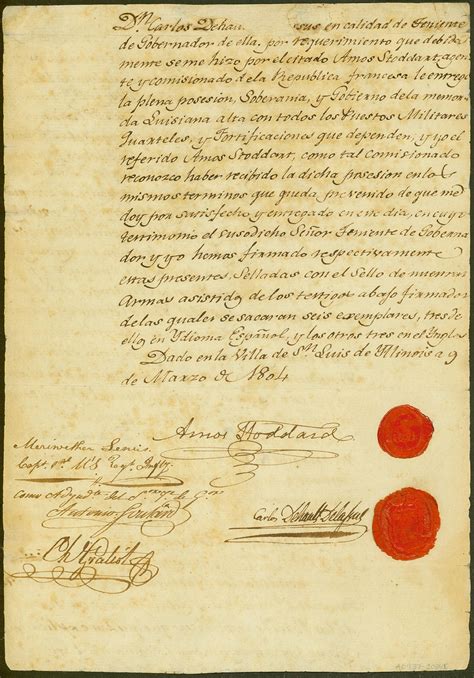 Dⁿ. Carlos Dehau sus en calidad de Teniente
de Gobernador de ella, por requerimiento que debida
mente se me hizo por el citado Amos Stoddart agen
te y comisionado de la Republica francesa le entregè
la plena posesion, Soberania, y Gobierno de la memora
da Luisiana alta con todos los Puestos Militares
Quarteles, y Fortificaciones que dependen, y yo el
referido Amos Stoddart, como tal Comisionado
reconozco haber recibido la dicha posesion en lo
mismos terminos que queda prevenido de que me
doy por satisfecho y entregado en este dia, en cuyo
terttimonio el susodicho Señor Teniente de Goberna
dor y yo hemos firmado respectivamente
estas presentes, Selladas con el Sello de nuestras
Armas asistido de los testigos abajo firmados
de las quales se sacaran seis exemplares, tres de
ellos en Ydioma Español, y los otros tres en el Ingles
Dado en la Villa de Sⁿ. Luis de Illinois a 9
de Marzo de 1804
Amos Stoddard
Meriwether Lewis
Capt. 1st. US. Regt. Infty.
Como Ayudte del
Antonio Soulard
Carlos Dehault Delassus
Ch Gratiot